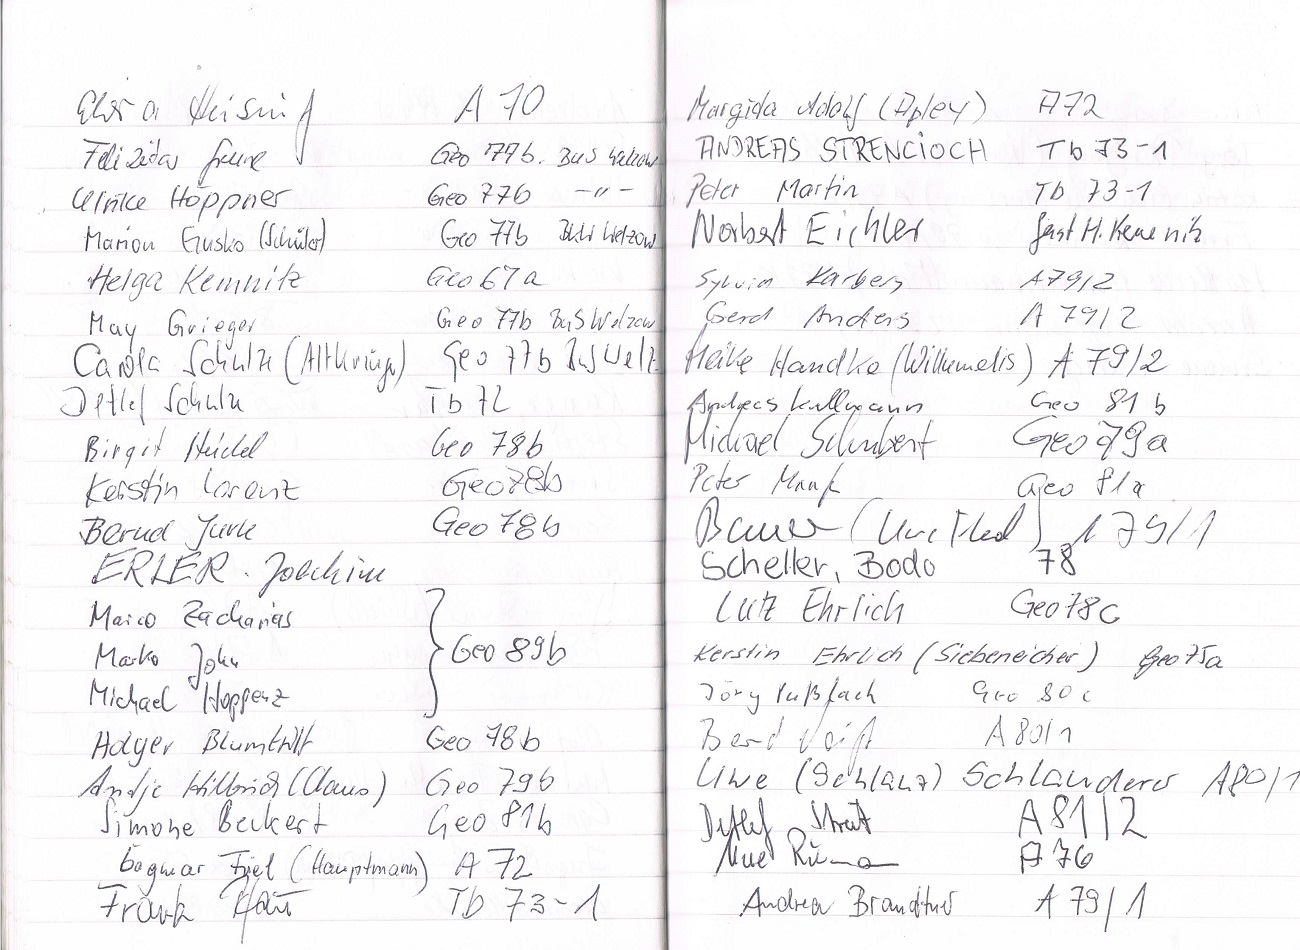 A 70
Geo 77b. BuS Welzow
Ulrike Höppner Geo 77b -"-
Marion Gusko (Schüler) Geo 77b BuS Welzow
Helga Kemnitz Geo 67a
May Grieger Geo 77b BuS Welzow
Carola Schulze (Altkrüger) Geo 77b BuS Welz.
Detlef Schulze Tb 72
Birgit Heidel Geo 78b
Kerstin Lorenz Geo78b
Bernd Jurk Geo 78b
ERLER. Joachim
Marco Zacharias
Marko John Geo 89b
Michael Hoppenz
Holger Geo 78b
Antje Hilbrich (Claus) Geo 79b
Simone Beckert Geo 81b
Dagmar (Hauptmann) A 72
Frank Tb 73-1
Margida Adolf (Apley) A72
ANDREAS STRENCIOCH Tb 73-1
Peter Martin Tb 73-1
Norbert Eichler Gast H. Kemnitz
Sylvia Karberg A79/2
Gerd Anders A 79/2
Heike Handke (Willumeits) A 79/2
Andreas Kullmann Geo 81b
Michael Schubert Geo 79a
Peter Geo 81a
79/1
Scheller, Bodo 78
Lutz Ehrlich Geo78c
Kerstin Ehrlich (Siebeneicher) Geo75a
Jörg Geo 80c
Bernd A 80/1
Uwe (Schlanz) Schlanderer A80/1
Detlef A81/2
A 76
Andrea Brandtner A 79/1